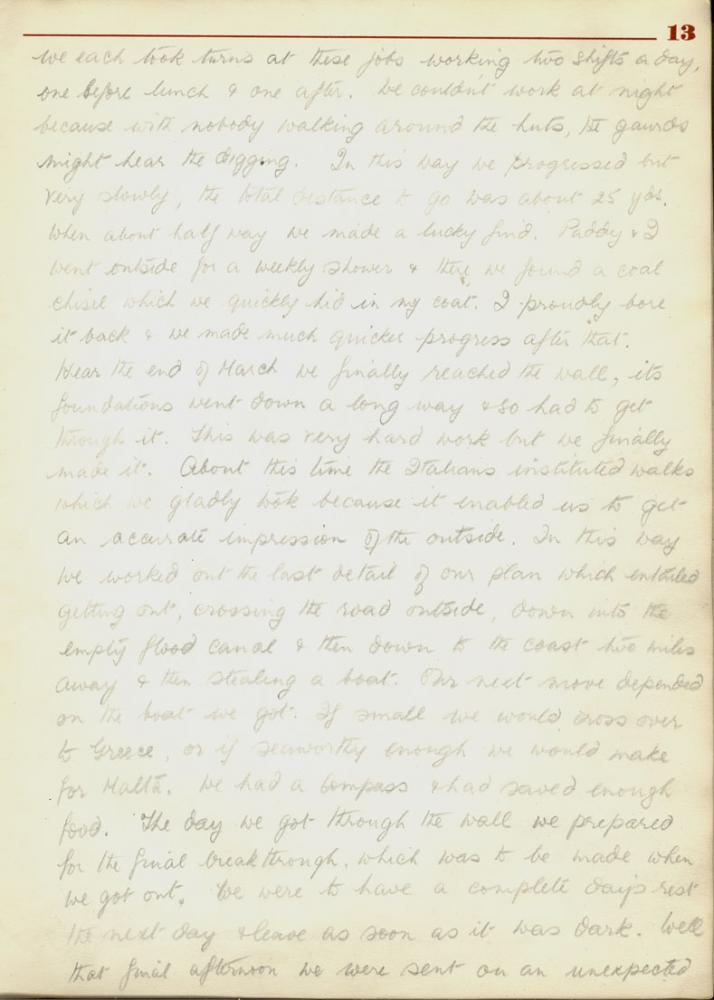 13
we each took turns at these jobs working two shifts a day,
one before lunch & one after. We couldn't work at night
because with nobody walking around the huts, the gaurds
might hear the digging. In this way we progressed but
very slowly, the total distance to go was about 25 yds.
When about half way we made a lucky find. Paddy & I
went outside for a weekly shower & there we found a coal
chisel which we quickly hid in my coat. I proudly bore
it back & we made much quicker progress after that.
Near the end of March we finally reached the wall, its
foundations went down a long way & so had to get
through it. This was very hard work but we finally
made it. About this time the Italians instituted walks
which we gladly took because it enabled us to get
an accurate impression of the outside. In this way
we worked out the last detail of our plan which entailed
getting out, crossing the road outside, down into the
empty flood canal & then down to the coast two miles
away & then stealing a boat. Our next move depended
on the boat we got. If small we would cross over
to Greece, or if seaworthy enough we would make
for Malta. We had a compass & had saved enough
food. The day we got through the wall we prepared
for the final breakthrough, which was to be made when
we got out. We were to have a complete days rest
the next day & leave as soon as it was dark. Well
that final afternoon we were sent on an unexpected